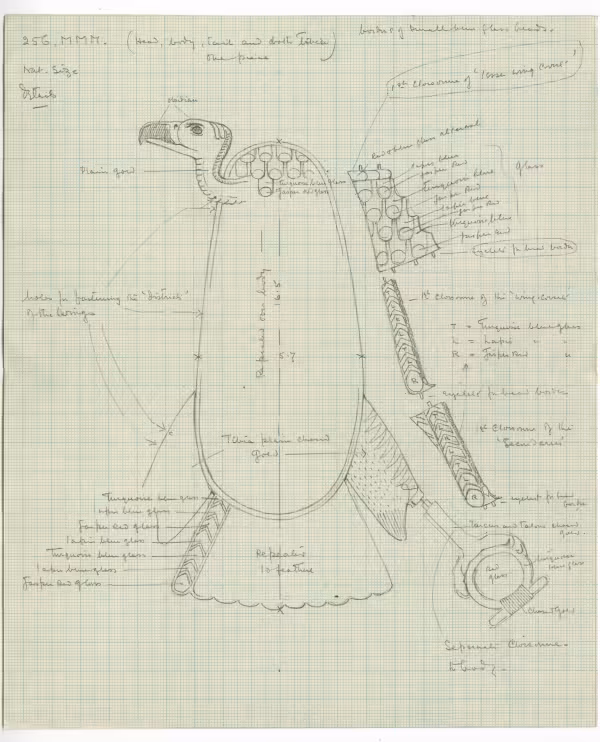 256, M.M.M.
(Head, body, tail and
one piece
border of small blue glass beads.
Nat. Size
Details
1st Cloisonné of
obsidian
Plain gold
Turquoise blue glass
Jasper red glass
lapis blue
Jasper Red
Turquoise blue
Jasper Red
lapis blue
Jasper Red
Turquoise blue
Jasper Red
glass
eyelets for bead
holes for fastening the "districts"
of the
Repeated on body
16.5
5.7
1st Cloisonné of the
T = Turquoise blue glass
L = Lapis " "
R = Jasper Red "
R
eyelets for bead border
1st Cloisonné of the
"Secondaries"
R
eyelet for bead
border
plain chased
gold
Turquoise blue glass
Lapis blue glass
Jasper red glass
Lapis blue glass
Turquoise blue glass
Lapis blue glass
Jasper red glass
Repeated
10 feathers
Tarsus and Talons chased
gold.
Red
glass
turquoise
blue glass
chased gold
Separate Cloisonné
to body.